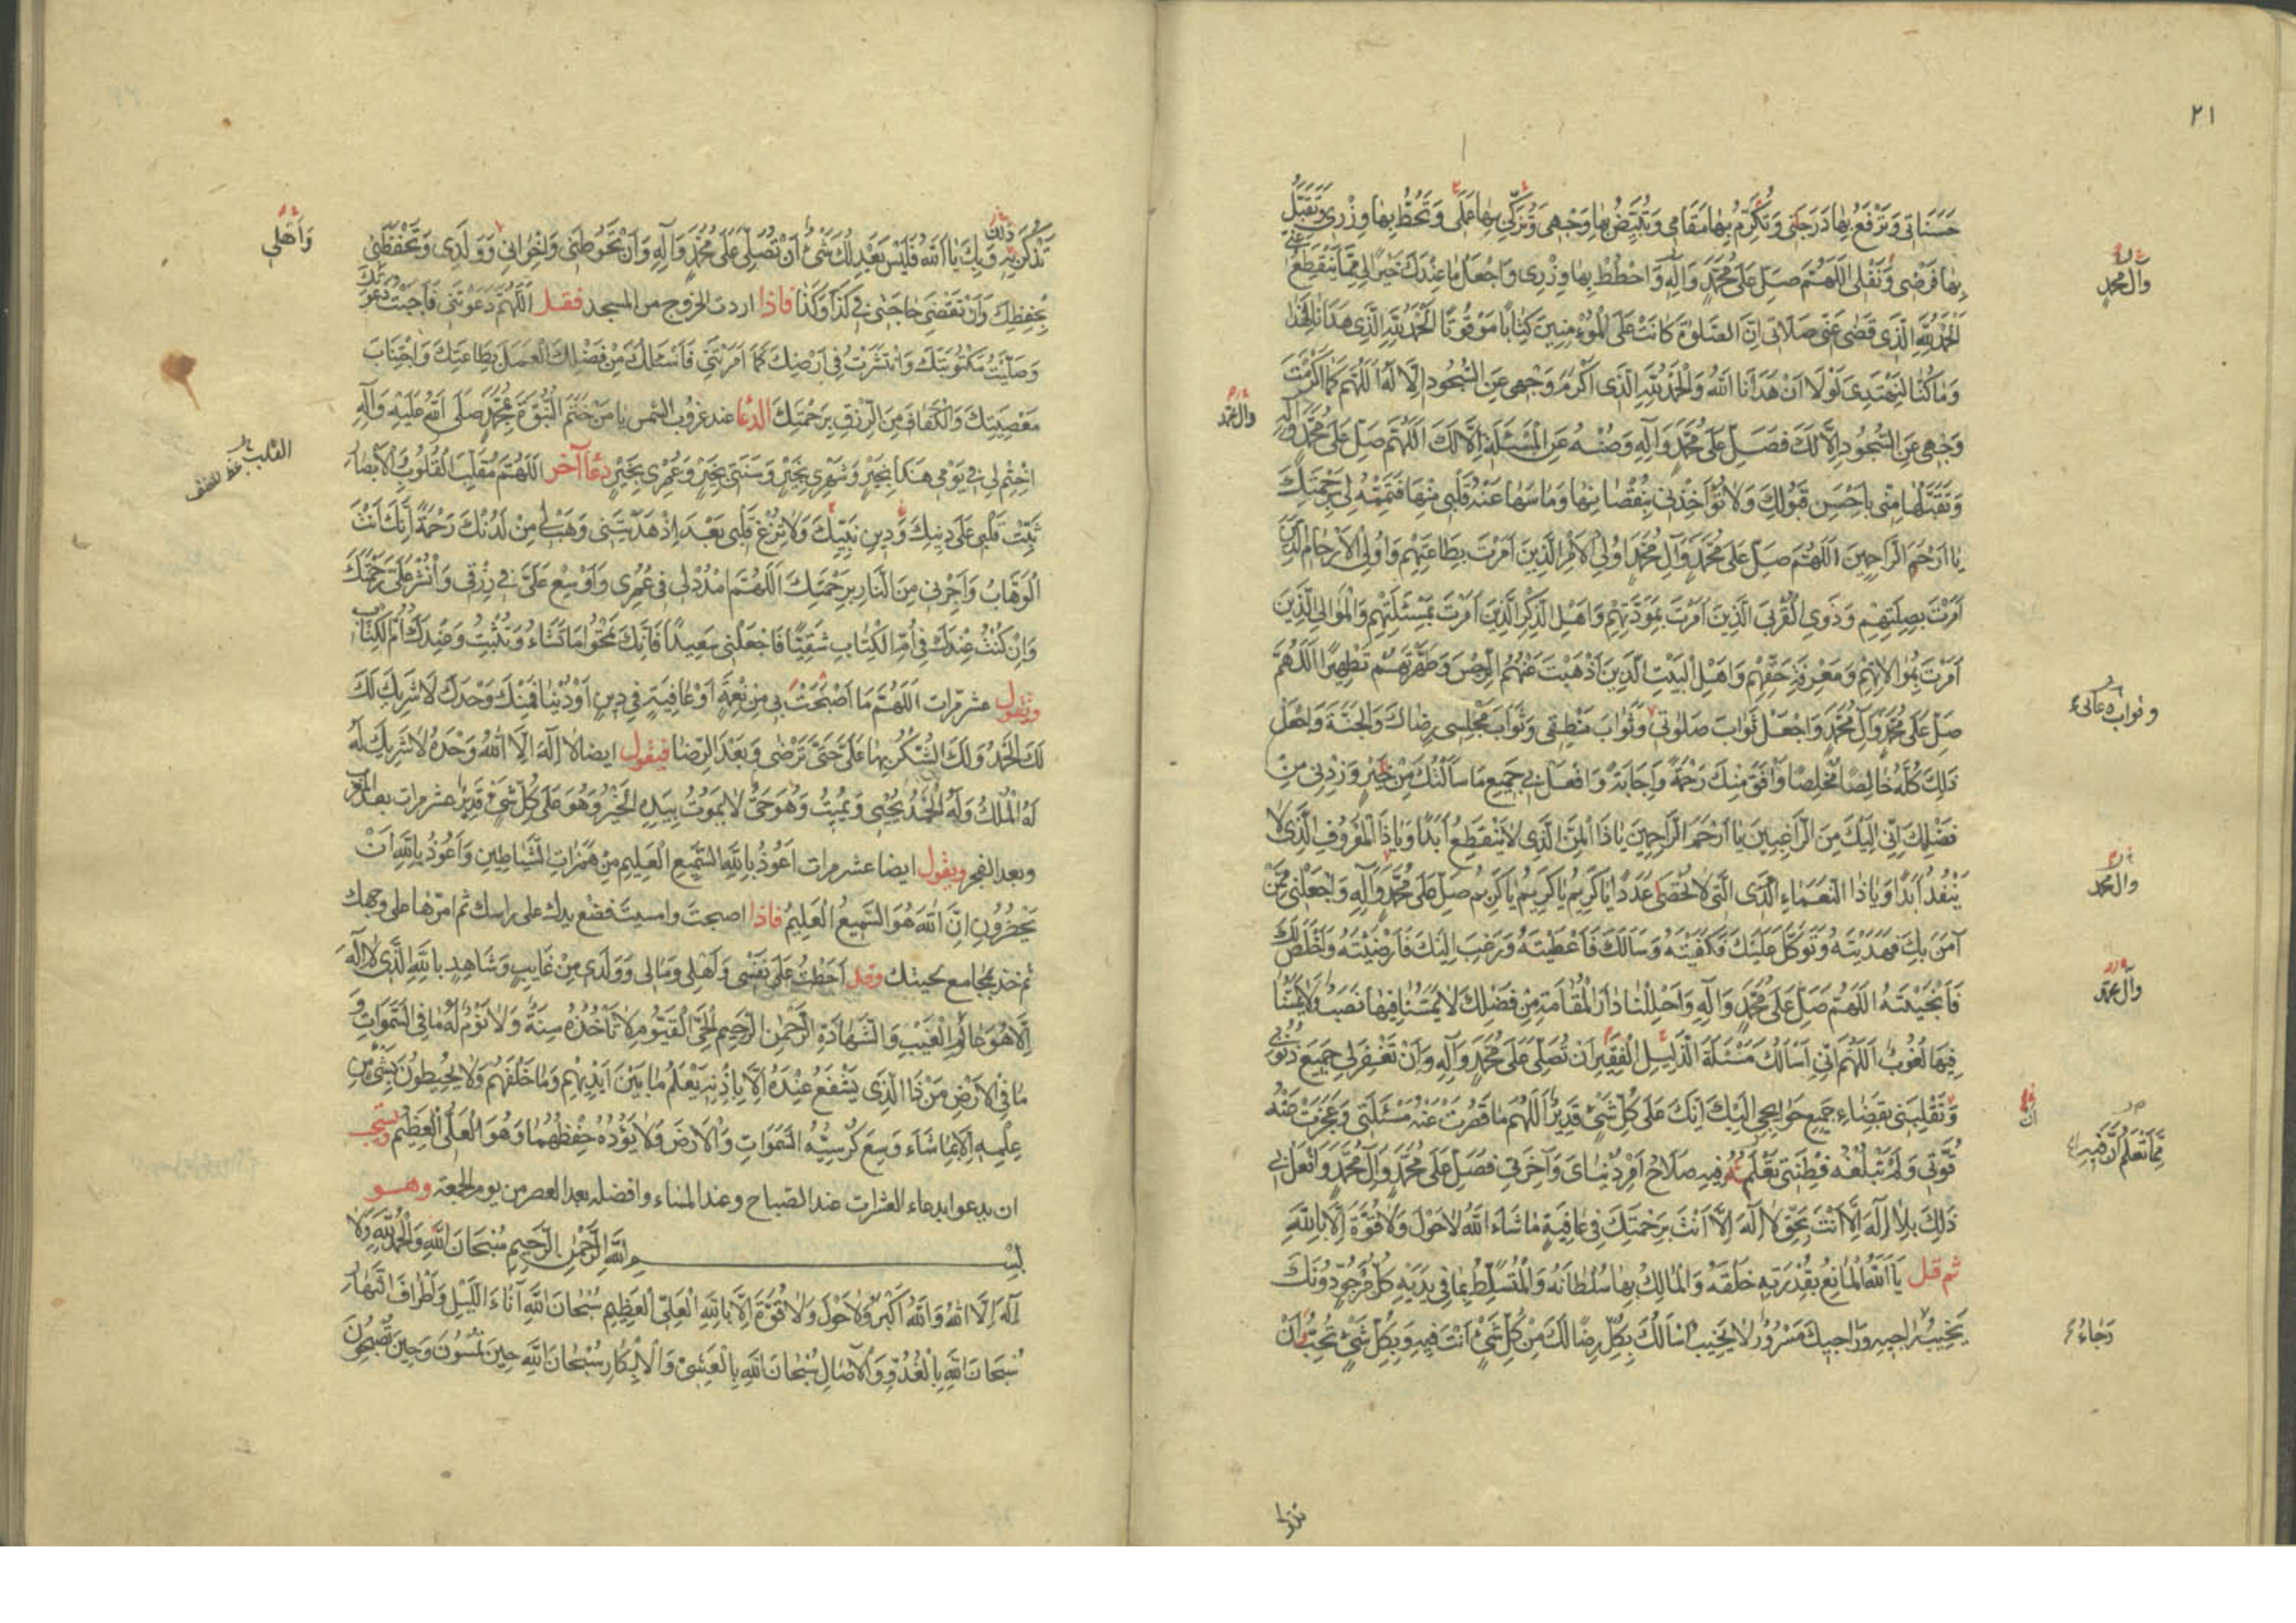 ٢١
حَسَنَاتى وَتَرْفَعُ بِهَا دَرَجَتى وَتُكْرِمُ بِهَا مَقَامى وَتُبَيِّضُ بِهَا وَجْهى وَتُزَكّى بِهَا عَمَلى وَتَحُطُّ بِهَا وِزْرى وَتَقَبَّلُ
بِهَا فَرْضى وَنَفْلى اَللّهُمَّ صَلِّ عَلى مُحَمَّدٍ وَآلِهِ وَاحْطُطْ بِهَا وِزْرى وَاجْعَلْ مَا عِنْدَكَ خَيْرًا لى مِمَّا يَنْقَطِعُ عَنّى
وآل محمد
اَلْحَمْدُ لِلّهِ الَّذى قَضى عَنّى صَلاتى اِنَّ الصَّلوةَ كَانَتْ عَلَى الْمُؤْمِنينَ كِتَابًا مَوْقُوتًا اَلْحَمْدُ لِلّهِ الَّذى هَدَانَا لِهذَا
وَمَا كُنَّا لِنَهْتَدِىَ لَوْلا اَنْ هَدَانَا اللهُ وَالْحَمْدُ لِلّهِ الَّذى اَكْرَمَ وَجْهى عَنِ السُّجُودِ اِلّا لَهُ اَللّهُمَّ كَمَا اَكْرَمْتَ
وَجْهى عَنِ السُّجُودِ اِلّا لَكَ فَصَلِّ عَلى مُحَمَّدٍ وَآلِهِ وَصُنْهُ عَنِ الْمَسْئَلَةِ اِلّا لَكَ اَللّهُمَّ صَلِّ عَلى مُحَمَّدٍ وَآلِهِ
وآل محمد
وَتَقَبَّلْهَا مِنّى بِاَحْسَنِ قَبُولِكَ وَلا تُؤَاخِذْنى بِنُقْصَانِهَا وَمَا سَهَا عَنْهُ قَلْبى مِنْهَا فَتَمِّمْهُ لى بِرَحْمَتِكَ
يَا اَرْحَمَ الرَّاحِمينَ اَللّهُمَّ صَلِّ عَلى مُحَمَّدٍ وَآلِ مُحَمَّدٍ اُولِى الْاَمْرِ الَّذينَ اَمَرْتَ بِطَاعَتِهِمْ وَاُولِى الْاَرْحَامِ الَّذينَ
اَمَرْتَ بِصِلَتِهِمْ وَذَوِى الْقُرْبى الَّذينَ اَمَرْتَ بِمَوَدَّتِهِمْ وَاَهْلِ الذِّكْرِ الَّذينَ اَمَرْتَ بِمَسْئَلَتِهِمْ وَالْمَوَالِى الَّذينَ
اَمَرْتَ بِمُوَالاتِهِمْ وَمَعْرِفَةِ حَقِّهِمْ وَاَهْلِ الْبَيْتِ الَّذينَ اَذْهَبْتَ عَنْهُمُ الرِّجْسَ وَطَهَّرْتَهُمْ تَطْهيرًا اَللّهُمَّ
صَلِّ عَلى مُحَمَّدٍ وَآلِ مُحَمَّدٍ وَاجْعَلْ ثَوَابَ صَلوتى وَثَوَابَ مَنْطِقى وَثَوَابَ مَجْلِسى رِضَاكَ وَالْجَنَّةَ وَاجْعَلْ
وثواب دعائى
ذلِكَ كُلَّهُ خَالِصًا مُخْلِصًا وَافَقَ مِنْكَ رَحْمَةً وَاِجَابَةً وَافْعَلْ بى جَميعَ مَا سَاَلْتُكَ مِنْ خَيْرٍ وَزِدْنى مِنْ
فَضْلِكَ اِنّى اِلَيْكَ مِنَ الرَّاغِبينَ يَا اَرْحَمَ الرَّاحِمينَ يَا ذَا الْمَنِّ الَّذى لا يَنْقَطِعُ اَبَدًا وَيَا ذَا الْمَعْرُوفِ الَّذى لا
يَنْفَدُ اَبَدًا وَيَا ذَا النَّعْمَاءِ الَّتى لا تُحْصى عَدَدًا يَا كَريمُ يَا كَريمُ يَا كَريمُ صَلِّ عَلى مُحَمَّدٍ وَآلِهِ وَاجْعَلْنى مِمَّنْ
وآل محمد
آمَنَ بِكَ فَهَدَيْتَهُ وَتَوَكَّلَ عَلَيْكَ فَكَفَيْتَهُ وَسَاَلَكَ فَاَعْطَيْتَهُ وَرَغِبَ اِلَيْكَ فَاَرْضَيْتَهُ وَاَخْلَصَ لَكَ
فَاَنْجَيْتَهُ اَللّهُمَّ صَلِّ عَلى مُحَمَّدٍ وَآلِهِ وَاَحْلِلْنَا دَارَ الْمُقَامَةِ مِنْ فَضْلِكَ لا يَمَسُّنَا فيهَا نَصَبٌ وَلا يَمَسُّنَا
وآل محمد
فيهَا لُغُوبٌ اَللّهُمَّ اِنّى اَسْاَلُكَ مَسْئَلَةَ الذَّليلِ الْفَقيرِ اَنْ تُصَلِّىَ عَلى مُحَمَّدٍ وَآلِهِ وَاَنْ تَغْفِرَ لى جَميعَ ذُنُوبى
وَتَقْلِبَنى بِقَضَاءِ جَميعِ حَوَائِجى اِلَيْكَ اِنَّكَ عَلى كُلِّ شَىْءٍ قَديرٌ اَللّهُمَّ مَا قَصُرَتْ عَنْهُ مَسْئَلَتى وَعَجَزَتْ عَنْهُ
قُوَّتى وَلَمْ تَبْلُغْهُ فِطْنَتى تَعْلَمُ فيهِ صَلاحَ اَمْرِ دُنْيَاىَ وَآخِرَتى فَصَلِّ عَلى مُحَمَّدٍ وَآلِ مُحَمَّدٍ وَافْعَلْ بى
ذلِكَ بِلا اِلهَ اِلّا اَنْتَ بِحَقِّ لا اِلهَ اِلّا اَنْتَ بِرَحْمَتِكَ فى عَافِيَةٍ مَا شَاءَ اللهُ لا حَوْلَ وَلا قُوَّةَ اِلّا بِاللهِ
ثم قل يَا اَللهُ الْمَانِعُ بِقُدْرَتِهِ خَلْقَهُ وَالْمَالِكُ بِهَا سُلْطَانَهُ وَالْمُتَسَلِّطُ بِمَا فى يَدَيْهِ كُلُّ مَرْجُوٍّ دُونَكَ
يَخيبُ رَاجيهِ وَرَاجيكَ مَسْرُورٌ لا يَخيبُ اَسْاَلُكَ بِكُلِّ رِضًا لَكَ مِنْ كُلِّ شَىْءٍ اَنْتَ فيهِ وَبِكُلِّ شَىْءٍ تُحِبُّ اَنْ
رَجَاءُ
تُذْكَرَ بِهِ وَبِكَ يَا اَللهُ فَلَيْسَ يَعْدِلُكَ شَىْءٌ اَنْ تُصَلِّىَ عَلى مُحَمَّدٍ وَآلِهِ وَاَنْ تَحُوطَنى وَاِخْوَانى وَوَلَدى وَتَحْفَظَنى
وَاَهْلى
بِحِفْظِكَ وَاَنْ تَقْضِىَ حَاجَتى فى كَذَا وَكَذَا فاذا اردت الخروج من المسجد فقل اَللّهُمَّ دَعَوْتَنى فَاَجَبْتُ دَعْوَتَكَ
وَصَلَّيْتُ مَكْتُوبَتَكَ وَانْتَشَرْتُ فى اَرْضِكَ كَمَا اَمَرْتَنى فَاَسْئَلُكَ مِنْ فَضْلِكَ الْعَمَلَ بِطَاعَتِكَ وَاجْتِنَابَ
مَعْصِيَتِكَ وَالْكَفَافَ مِنَ الرِّزْقِ بِرَحْمَتِكَ الدعا عند غروب الشمس يَا مَنْ خَتَمَ النُّبُوَّةَ بِمُحَمَّدٍ صَلَّى اللهُ عَلَيْهِ وَآلِهِ
اخْتِمْ لى فى يَوْمى هذَا بِخَيْرٍ وَشَهْرى بِخَيْرٍ وَسَنَتى بِخَيْرٍ وَعُمْرى بِخَيْرٍ دعاآخر اَللّهُمَّ مُقَلِّبَ الْقُلُوبِ وَالْاَبْصَارِ
ثَبِّتْ قَلْبى عَلى دينِكَ وَدينِ نَبِيِّكَ وَلا تُزِغْ قَلْبى بَعْدَ اِذْ هَدَيْتَنى وَهَبْ لى مِنْ لَدُنْكَ رَحْمَةً اِنَّكَ اَنْتَ
الْوَهَّابُ وَاَجِرْنى مِنَ النَّارِ بِرَحْمَتِكَ اَللّهُمَّ امْدُدْ لى فى عُمْرى وَاَوْسِعْ عَلَىَّ فى رِزْقى وَانْشُرْ عَلَىَّ رَحْمَتَكَ
وَاِنْ كُنْتُ عِنْدَكَ فى اُمِّ الْكِتَابِ شَقِيًّا فَاجْعَلْنى سَعيدًا فَاِنَّكَ تَمْحُو مَا تَشَاءُ وَتُثْبِتُ وَعِنْدَكَ اُمُّ الْكِتَابِ
وتقول عشر مرات اَللّهُمَّ مَا اَصْبَحَتْ بى مِنْ نِعْمَةٍ اَوْ عَافِيَةٍ فى دينٍ اَوْ دُنْيَا فَمِنْكَ وَحْدَكَ لا شَريكَ لَكَ
لَكَ الْحَمْدُ وَلَكَ الشُّكْرُ بِهَا عَلَىَّ حَتّى تَرْضى وَبَعْدَ الرِّضَا فيقول ايضا لا اِلهَ اِلّا اللهُ وَحْدَهُ لا شَريكَ لَهُ
لَهُ الْمُلْكُ وَلَهُ الْحَمْدُ يُحْيى وَيُميتُ وَهُوَ حَىٌّ لا يَمُوتُ بِيَدِهِ الْخَيْرُ وَهُوَ عَلى كُلِّ شَىْءٍ قَديرٌ عشر مرات بعد المغرب
وبعد الفجر ويقول ايضا عشر مرات اَعُوذُ بِاللهِ السَّميعِ الْعَليمِ مِنْ هَمَزَاتِ الشَّيَاطينِ وَاَعُوذُ بِاللهِ اَنْ
يَحْضُرُونِ اِنَّ اللهَ هُوَ السَّميعُ الْعَليمُ فاذا اصبحت وامسيت فضع يدك على راسك ثم امرّها على وجهك
ثم خذ بمجامع لحيتك وقل اَحَطْتُ عَلى نَفْسى وَاَهْلى وَمَالى وَوَلَدى مِنْ غَايِبٍ وَشَاهِدٍ بِاللهِ الَّذى لا اِلهَ
اِلّا هُوَ عَالِمُ الْغَيْبِ وَالشَّهَادَةِ الرَّحْمنِ الرَّحيمِ الْحَىِّ الْقَيُّومِ لا تَاْخُذُهُ سِنَةٌ وَلا نَوْمٌ لَهُ مَا فِى السَّموَاتِ وَ
مَا فِى الْاَرْضِ مَنْ ذَا الَّذى يَشْفَعُ عِنْدَهُ اِلّا بِاِذْنِهِ يَعْلَمُ مَا بَيْنَ اَيْديهِمْ وَمَا خَلْفَهُمْ وَلا يُحيطُونَ بِشَىْءٍ مِنْ
عِلْمِهِ اِلّا بِمَا شَاءَ وَسِعَ كُرْسِيُّهُ السَّموَاتِ وَالْاَرْضَ وَلا يَؤُدُهُ حِفْظُهُمَا وَهُوَ الْعَلِىُّ الْعَظيمُ ويستحب
ان يدعو ابدعاء العشرات عند الصباح وعند المساء وافضله بعد العصر من يوم الجمعة وهو
بسم اللهِ الرَّحْمنِ الرَّحيمِ سُبْحَانَ اللهِ وَالْحَمْدُ لِلّهِ وَلا
اِلهَ اِلّا اللهُ وَاللهُ اَكْبَرُ وَلا حَوْلَ وَلا قُوَّةَ اِلّا بِاللهِ الْعَلِىِّ الْعَظيمِ سُبْحَانَ اللهِ آنَاءَ اللَّيْلِ وَاَطْرَافَ النَّهَارِ
سُبْحَانَ اللهِ بِالْغُدُوِّ وَالْآصَالِ سُبْحَانَ اللهِ بِالْعَشِىِّ وَالْاِبْكَارِ سُبْحَانَ اللهِ حينَ تُمْسُونَ وَحينَ تُصْبِحُونَ